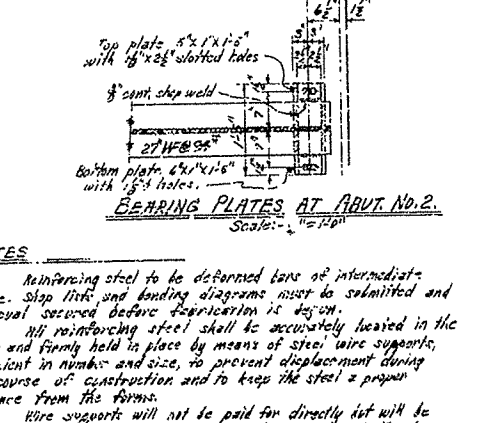 6½" 1½"
Top plate 5"x1"x1'-5"
with slotted holes
cont. shop weld
27" WF @ 94#
Bottom plate, 6"x1"x1'-5"
with holes.
BEARING PLATES AT ABUT. NO.2.
Scale:- "=1'-0"
TES
Reinforcing steel to be deformed bars of intermediate
e. Shop lists and bending diagrams must be submitted and
oval secured before fabrication is begun.
All reinforcing steel shall be accurately located in the
and firmly held in place by means of steel wire supports,
cient in number and size, to prevent displacement during
course of construction and to keep the steel a proper
nce from the forms.
Wire supports will not be paid for directly but will be